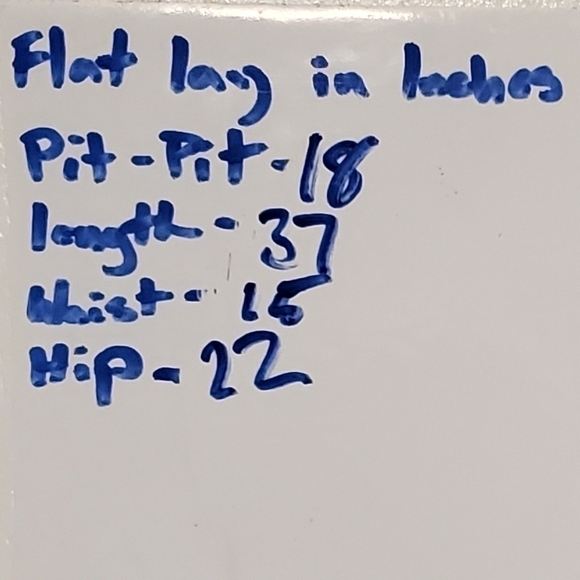 Flat lay in Inches
Pit-Pit-18
length-37
Waist-15
Hip-22